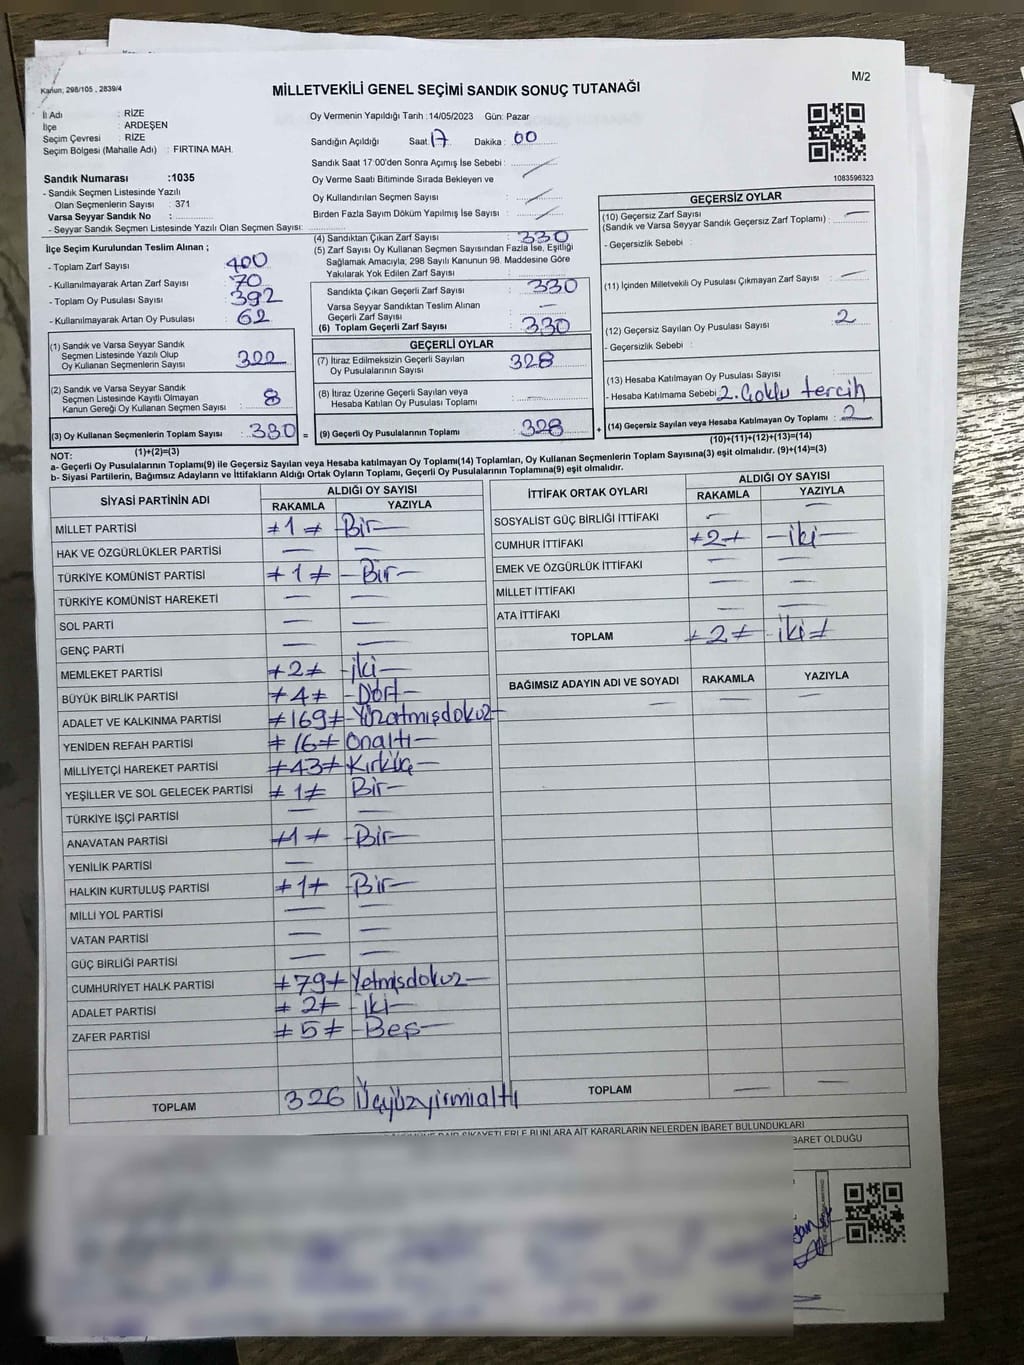 Kanun, 298/105 , 2839/4
M/2
MİLLETVEKİLİ GENEL SEÇİMİ SANDIK SONUÇ TUTANAĞI
İl Adı : RİZE
İlçe : ARDEŞEN
Seçim Çevresi : RİZE
Seçim Bölgesi (Mahalle Adı) : FIRTINA MAH.
Sandık Numarası :1035
- Sandık Seçmen Listesinde Yazılı
Olan Seçmenlerin Sayısı : 371
Varsa Seyyar Sandık No :
- Seyyar Sandık Seçmen Listesinde Yazılı Olan Seçmen Sayısı:
Oy Vermenin Yapıldığı Tarih :14/05/2023 Gün: Pazar
Sandığın Açıldığı Saat: 17 Dakika : 00
Sandık Saat 17:00'den Sonra Açımış İse Sebebi :
Oy Verme Saati Bitiminde Sırada Bekleyen ve
Oy Kullandırılan Seçmen Sayısı :
Birden Fazla Sayım Döküm Yapılmış İse Sayısı :
1083596323
İlçe Seçim Kurulundan Teslim Alınan ;
- Toplam Zarf Sayısı : 400
- Kullanılmayarak Artan Zarf Sayısı : 70
- Toplam Oy Pusulası Sayısı : 392
- Kullanılmayarak Artan Oy Pusulası : 62
(1) Sandık ve Varsa Seyyar Sandık
Seçmen Listesinde Yazılı Olup
Oy Kullanan Seçmenlerin Sayısı : 322
(2) Sandık ve Varsa Seyyar Sandık
Seçmen Listesinde Kayıtlı Olmayan
Kanun Gereği Oy Kullanan Seçmen Sayısı : 8
(3) Oy Kullanan Seçmenlerin Toplam Sayısı : 330 =
(1)+(2)=(3)
(4) Sandıktan Çıkan Zarf Sayısı : 330
(5) Zarf Sayısı Oy Kullanan Seçmen Sayısından Fazla İse, Eşitliği
Sağlamak Amacıyla, 298 Sayılı Kanunun 98. Maddesine Göre
Yakılarak Yok Edilen Zarf Sayısı :
Sandıkta Çıkan Geçerli Zarf Sayısı : 330
Varsa Seyyar Sandıktan Teslim Alınan
Geçerli Zarf Sayısı : —
(6) Toplam Geçerli Zarf Sayısı : 330
GEÇERLİ OYLAR
(7) İtiraz Edilmeksizin Geçerli Sayılan
Oy Pusulalarının Sayısı : 328
(8) İtiraz Üzerine Geçerli Sayılan veya
Hesaba Katılan Oy Pusulası Toplamı : —
(9) Geçerli Oy Pusulalarının Toplamı : 328 +
GEÇERSİZ OYLAR
(10) Geçersiz Zarf Sayısı : —
(Sandık ve Varsa Seyyar Sandık Geçersiz Zarf Toplamı) :
- Geçersizlik Sebebi :
(11) İçinden Milletvekili Oy Pusulası Çıkmayan Zarf Sayısı : —
(12) Geçersiz Sayılan Oy Pusulası Sayısı : 2
- Geçersizlik Sebebi :
(13) Hesaba Katılmayan Oy Pusulası Sayısı :
- Hesaba Katılmama Sebebi : 2. Çoklu tercih
(14) Geçersiz Sayılan veya Hesaba Katılmayan Oy Toplamı : 2
(10)+(11)+(12)+(13)=(14)
NOT:
a- Geçerli Oy Pusulalarının Toplamı(9) ile Geçersiz Sayılan veya Hesaba katılmayan Oy Toplamı(14) Toplamları, Oy Kullanan Seçmenlerin Toplam Sayısına(3) eşit olmalıdır. (9)+(14)=(3)
b- Siyasi Partilerin, Bağımsız Adayların ve İttifakların Aldığı Ortak Oyların Toplamı, Geçerli Oy Pusulalarının Toplamına(9) eşit olmalıdır.
SİYASİ PARTİNİN ADI ALDIĞI OY SAYISI
RAKAMLA YAZIYLA
MİLLET PARTİSI ≠1≠ -Bir-
HAK VE ÖZGÜRLÜKLER PARTİSİ — —
TÜRKİYE KOMÜNİST PARTİSİ ≠1≠ -Bir-
TÜRKİYE KOMÜNİST HAREKETİ — —
SOL PARTİ — —
GENÇ PARTİ — —
MEMLEKET PARTİSİ ≠2≠ -İki-
BÜYÜK BİRLİK PARTİSİ ≠4≠ -Dört-
ADALET VE KALKINMA PARTİSİ ≠169≠ -Yüzatmışdokuz-
YENİDEN REFAH PARTİSİ ≠16≠ Onaltı-
MİLLİYETÇİ HAREKET PARTİSİ ≠43≠ Kırküç-
YEŞİLLER VE SOL GELECEK PARTİSİ ≠1≠ Bir-
TÜRKİYE İŞÇİ PARTİSİ — —
ANAVATAN PARTİSİ ≠1≠ -Bir-
YENİLİK PARTİSİ —
HALKIN KURTULUŞ PARTİSİ ≠1≠ -Bir-
MİLLİ YOL PARTİSİ — —
VATAN PARTİSİ — —
GÜÇ BİRLİĞİ PARTİSİ — —
CUMHURİYET HALK PARTİSİ ≠79≠ Yetmişdokuz-
ADALET PARTİSİ ≠2≠ -iki-
ZAFER PARTİSİ ≠5≠ -Beş-
TOPLAM 326 Üçyüzyirmialtı
İTTİFAK ORTAK OYLARI ALDIĞI OY SAYISI
RAKAMLA YAZIYLA
SOSYALİST GÜÇ BİRLİĞİ İTTİFAKI — —
CUMHUR İTTİFAKI ≠2≠ -iki-
EMEK VE ÖZGÜRLÜK İTTİFAKI — —
MİLLET İTTİFAKI — —
ATA İTTİFAKI — —
TOPLAM ≠2≠ -iki≠
BAĞIMSIZ ADAYIN ADI VE SOYADI RAKAMLA YAZIYLA
— — —
TOPLAM — —
ŞİKAYETLERLE BUNLARA AİT KARARLARIN NELERDEN İBARET BULUNDUKLARI
BARET OLDUĞU